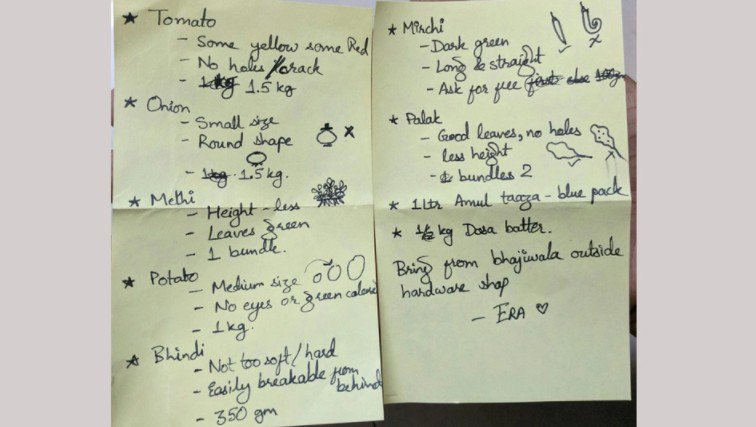 ★ Tomato
- Some yellow some Red
- No holes / crack
- 1.5 kg
★ Onion
- Small size
- Round shape
- 1.5 kg.
★ Methi
- Height - less
- Leaves green
- 1 bundle.
★ Potato
- Medium size
- No eyes or green
- 1 kg.
★ Bhindi
- Not too soft / hard
- Easily breakable from
behind
- 350 gm
★ Mirchi
- Dark green
- Long & straight
- Ask for free
★ Palak
- Good leaves, no holes
- less height
- bundles 2
★ 1 ltr Amul taaza - blue pack
★ kg Dosa batter.
Bring from bhajiwala outside
hardware shop
- ERA ♡